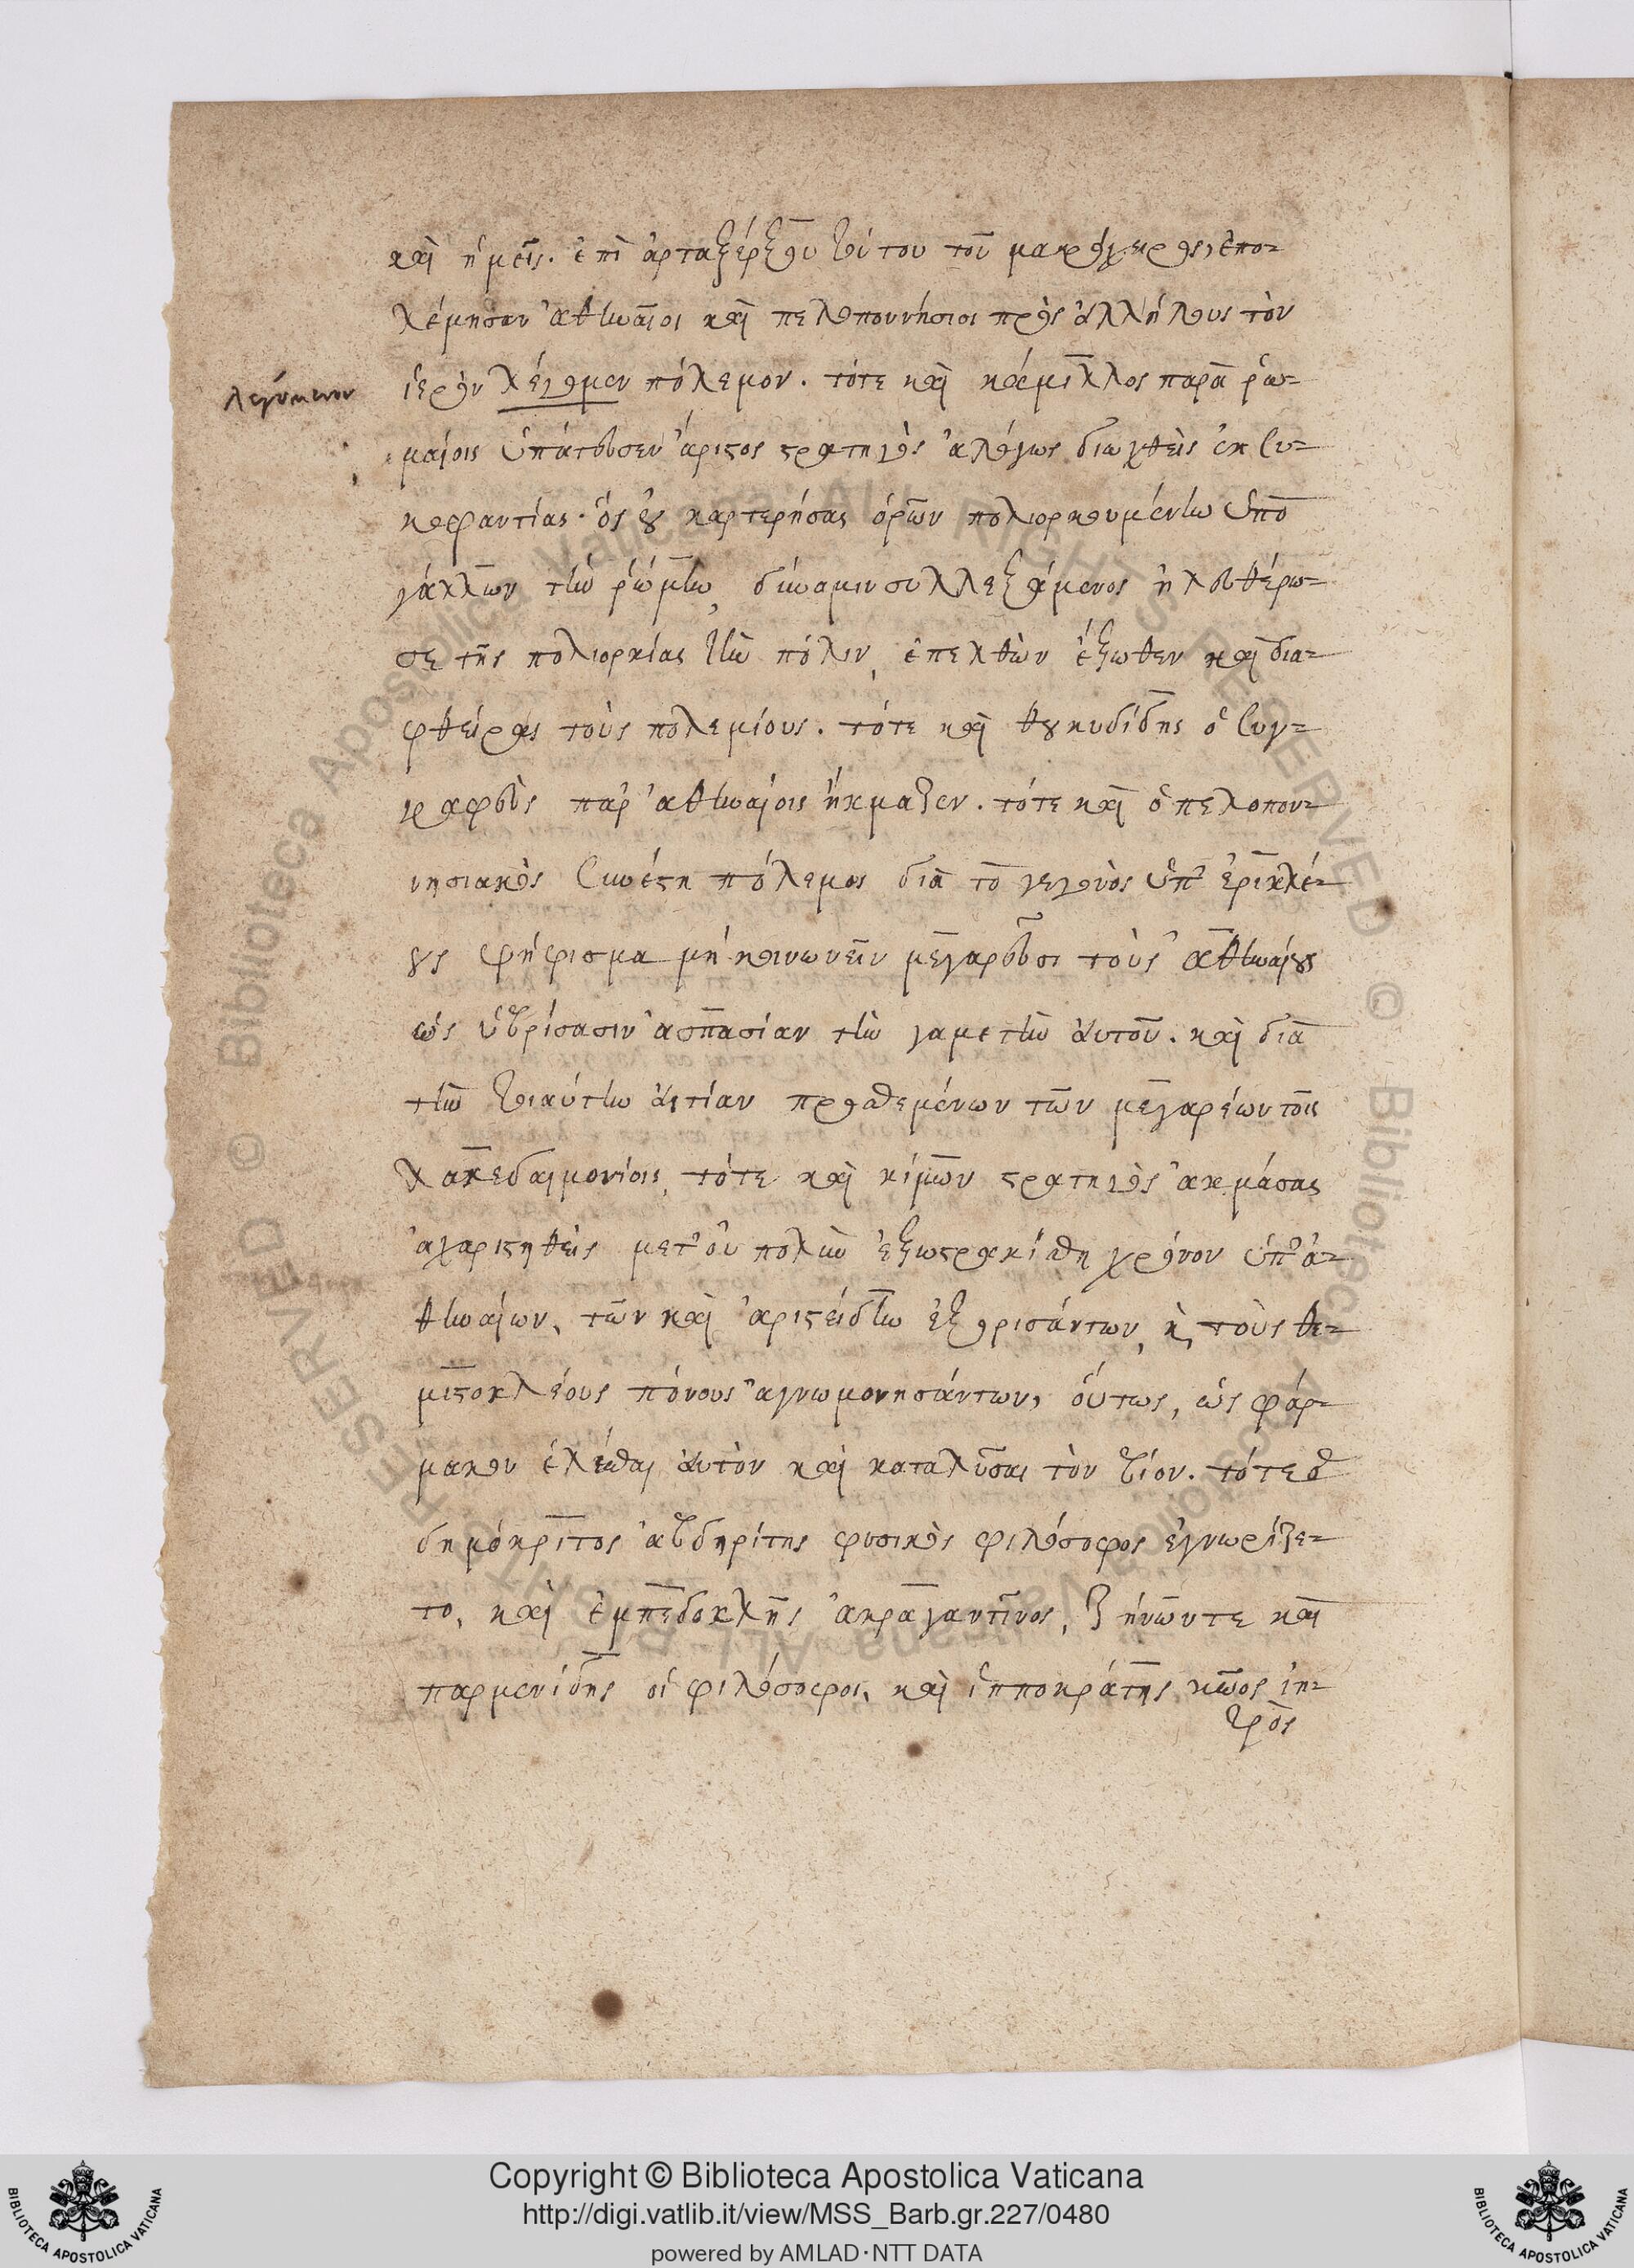 καὶ ἡμεῖς. ἐπὶ ἀρταξέρξου τούτου τοῦ μακρόχειρος, ἐπο-
λέμησαν ἀθηναῖοι καὶ πελοποννήσιοι πρὸς ἀλλήλους τὸν
λεγόμενον
ἱερὸν λέγομεν πόλεμον. τότε καὶ κάμιλλος παρὰ ῥω-
μαίοις ὑπάτευσεν ἄριστος στρατηγὸς ἀλόγως διωχθεὶς ἐκ συ-
κοφαντίας· ὃς οὐ καρτερήσας ὁρῶν πολιορκουμένην ὑπὸ
γάλλων τὴν ῥώμην, δύναμιν συλλεξάμενος ἠλευθέρω-
σε τῆς πολιορκίας τὴν πόλιν, ἐπελθὼν ἔξωθεν καὶ δια-
φθείρας τοὺς πολεμίους. τότε καὶ θουκυδίδης ὁ συγ-
γραφεὺς παρ' ἀθηναίοις ἤκμαζεν. τότε καὶ ὁ πελοπον-
νησιακὸς συνέστη πόλεμος διὰ τὸ γεγονὸς ὑπ' ἐρικλέ-
ους ψήφισμα μὴ κοινωνεῖν μεγαρεῦσι τοὺς ἀθηναίους
ὡς ὑβρίσασιν ἀσπασίαν τὴν γαμετὴν αὐτοῦ. καὶ διὰ
τὴν τοιαύτην αἰτίαν προσθεμένων τῶν μεγαρέων τοῖς
λακεδαιμονίοις, τότε καὶ κίμων στρατηγὸς ἀκμάσας
ἀχαριστηθεὶς μετ' οὐ πολὺν ἐξωστρακίσθη χρόνον ὑπ' ἀ-
θηναίων, τῶν καὶ ἀριστείδην ἐξορισάντων, κὶ τοὺς θε-
μιστοκλέους πόνους ἀγνωμονησάντων, οὕτως, ὡς φάρ-
μακον ἑλέσθαι αὐτὸν καὶ καταλῦσαι τὸν βίον. τότε δὲ
δημόκριτος ἀβδηρίτης φυσικὸς φιλόσοφος ἐγνωρίζε-
το, καὶ ἐμπεδοκλῆς ἀκραγαντῖνος, ζήνων τε καὶ
παρμενίδης οἱ φιλόσοφοι, καὶ ἱπποκράτης κῶος ἰη-
τρὸς
Copyright © Biblioteca Apostolica Vaticana
http://digi.vatlib.it/view/MSS_Barb.gr.227/0480
powered by AMLAD·NTT DATA